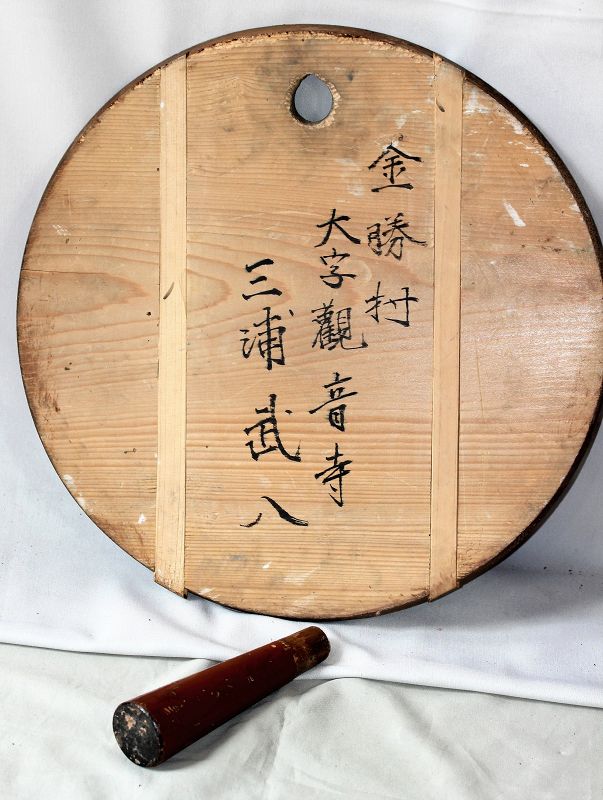 金勝村
大字觀音寺
三浦武八